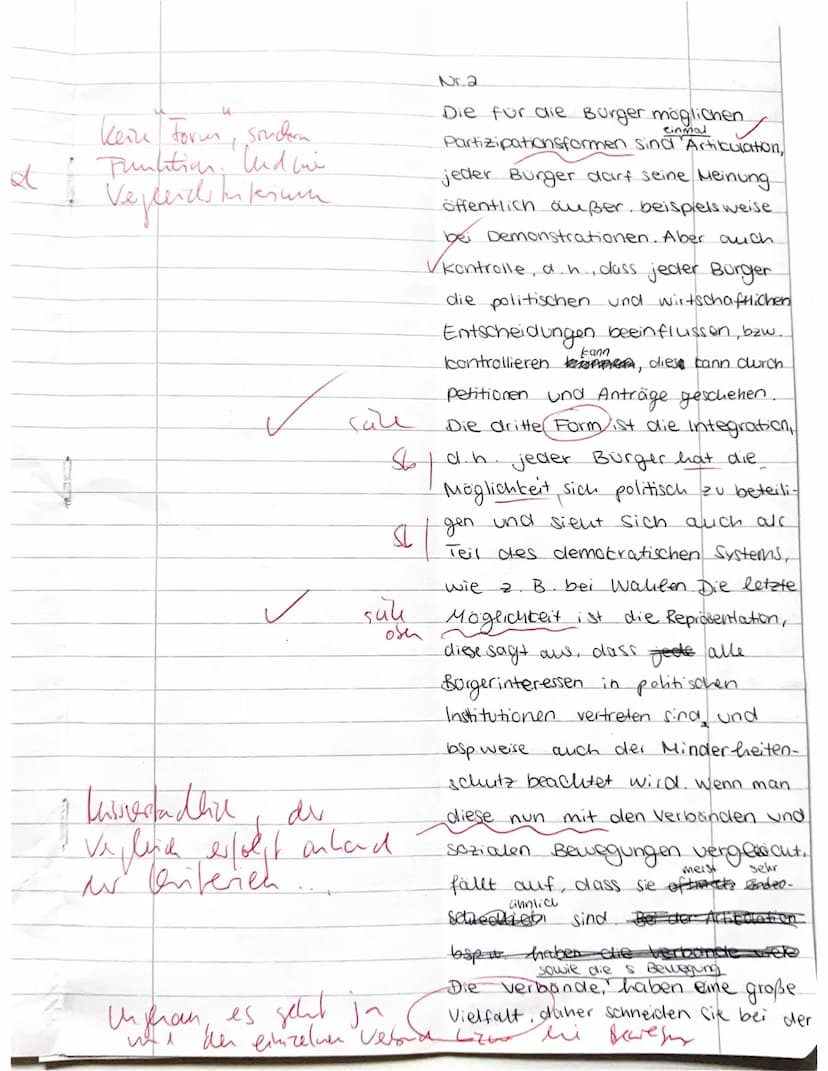 Nr. 2
Die für die Bürger möglichen
einmal
Partizipationsformen sind Artikulation,
jeder Bürger darf seine Meinung
öffentlich äußer. beispielsweise
bei Demonstrationen. Aber auch
Kontrolle, d.h., dass jeder Bürger
die politischen und wirtschaftlichen
Entscheidungen beeinflussen, bzw.
kann
kontrollieren, diese kann durch
Petitionen und Anträge geschehen.
Die dritte Form ist die Integration,
d.h. jeder Bürger hat die
Möglichkeit sich politisch zu beteili-
gen und sieht sich auch als
Teil des demokratischen Systems,
wie z. B. bei Wahlen. Die letzte
Möglichkeit ist die Repräsentation,
diese sagt aus, dass jede alle
Bürgerinteressen in politischen
Institutionen vertreten sind, und
bspweise auch der Minderheiten-
schutz beachtet wird. Wenn man
diese nun mit den Verbänden und
sozialen Bewegungen vergleicht,
meist sehr
fällt auf, dass sie
ähnlich
sind. Bei der Artikulation
bspw. haben die Verbände viele
sowie die s Bewegung
Die Verbände, haben eine große
Vielfalt, daher schneiden sie bei der
kein "Form", sondern
Funktion. Und wie
Vergleichskriterium
siehe
Sb
SL
siehe
oben
Missverständlich, der
Vergleich erfolgt anhand
der Kriterien ...
Ungenau, es geht ja
um den einzelnen Verband bzw. die Bewegung